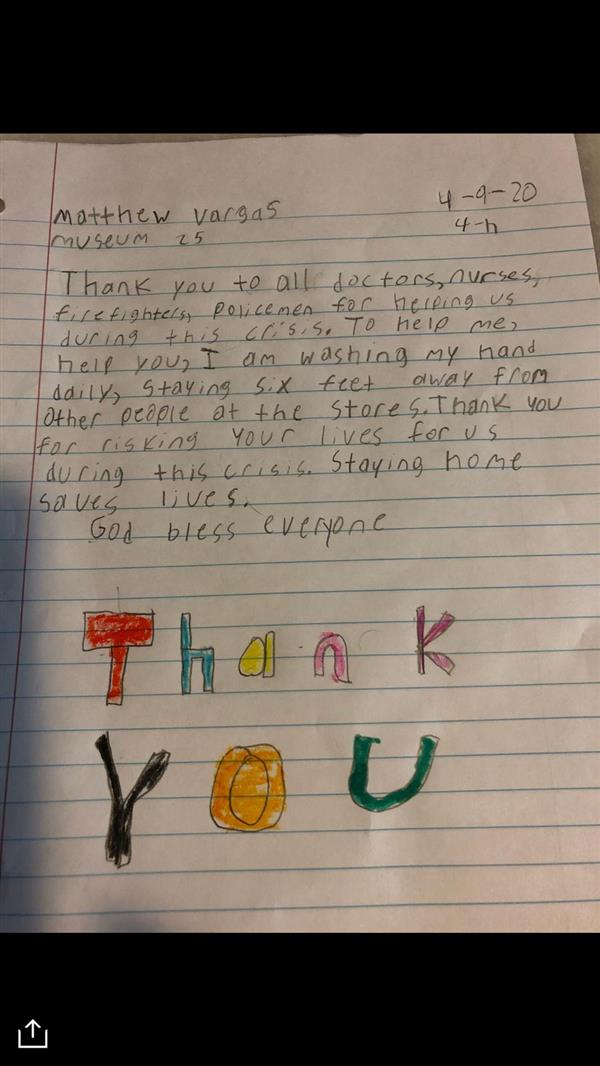 Matthew Vargas
museum 25
4-9-20
4-h
Thank you to all doctors, nurses,
firefighters, policemen for helping us
during this crisis. To help me,
help you, I am washing my hand
daily, staying six feet away from
other people at the stores. Thank you
for risking your lives for us
during this crisis. Staying home
saves lives.
God bless everyone
Thank
YOU